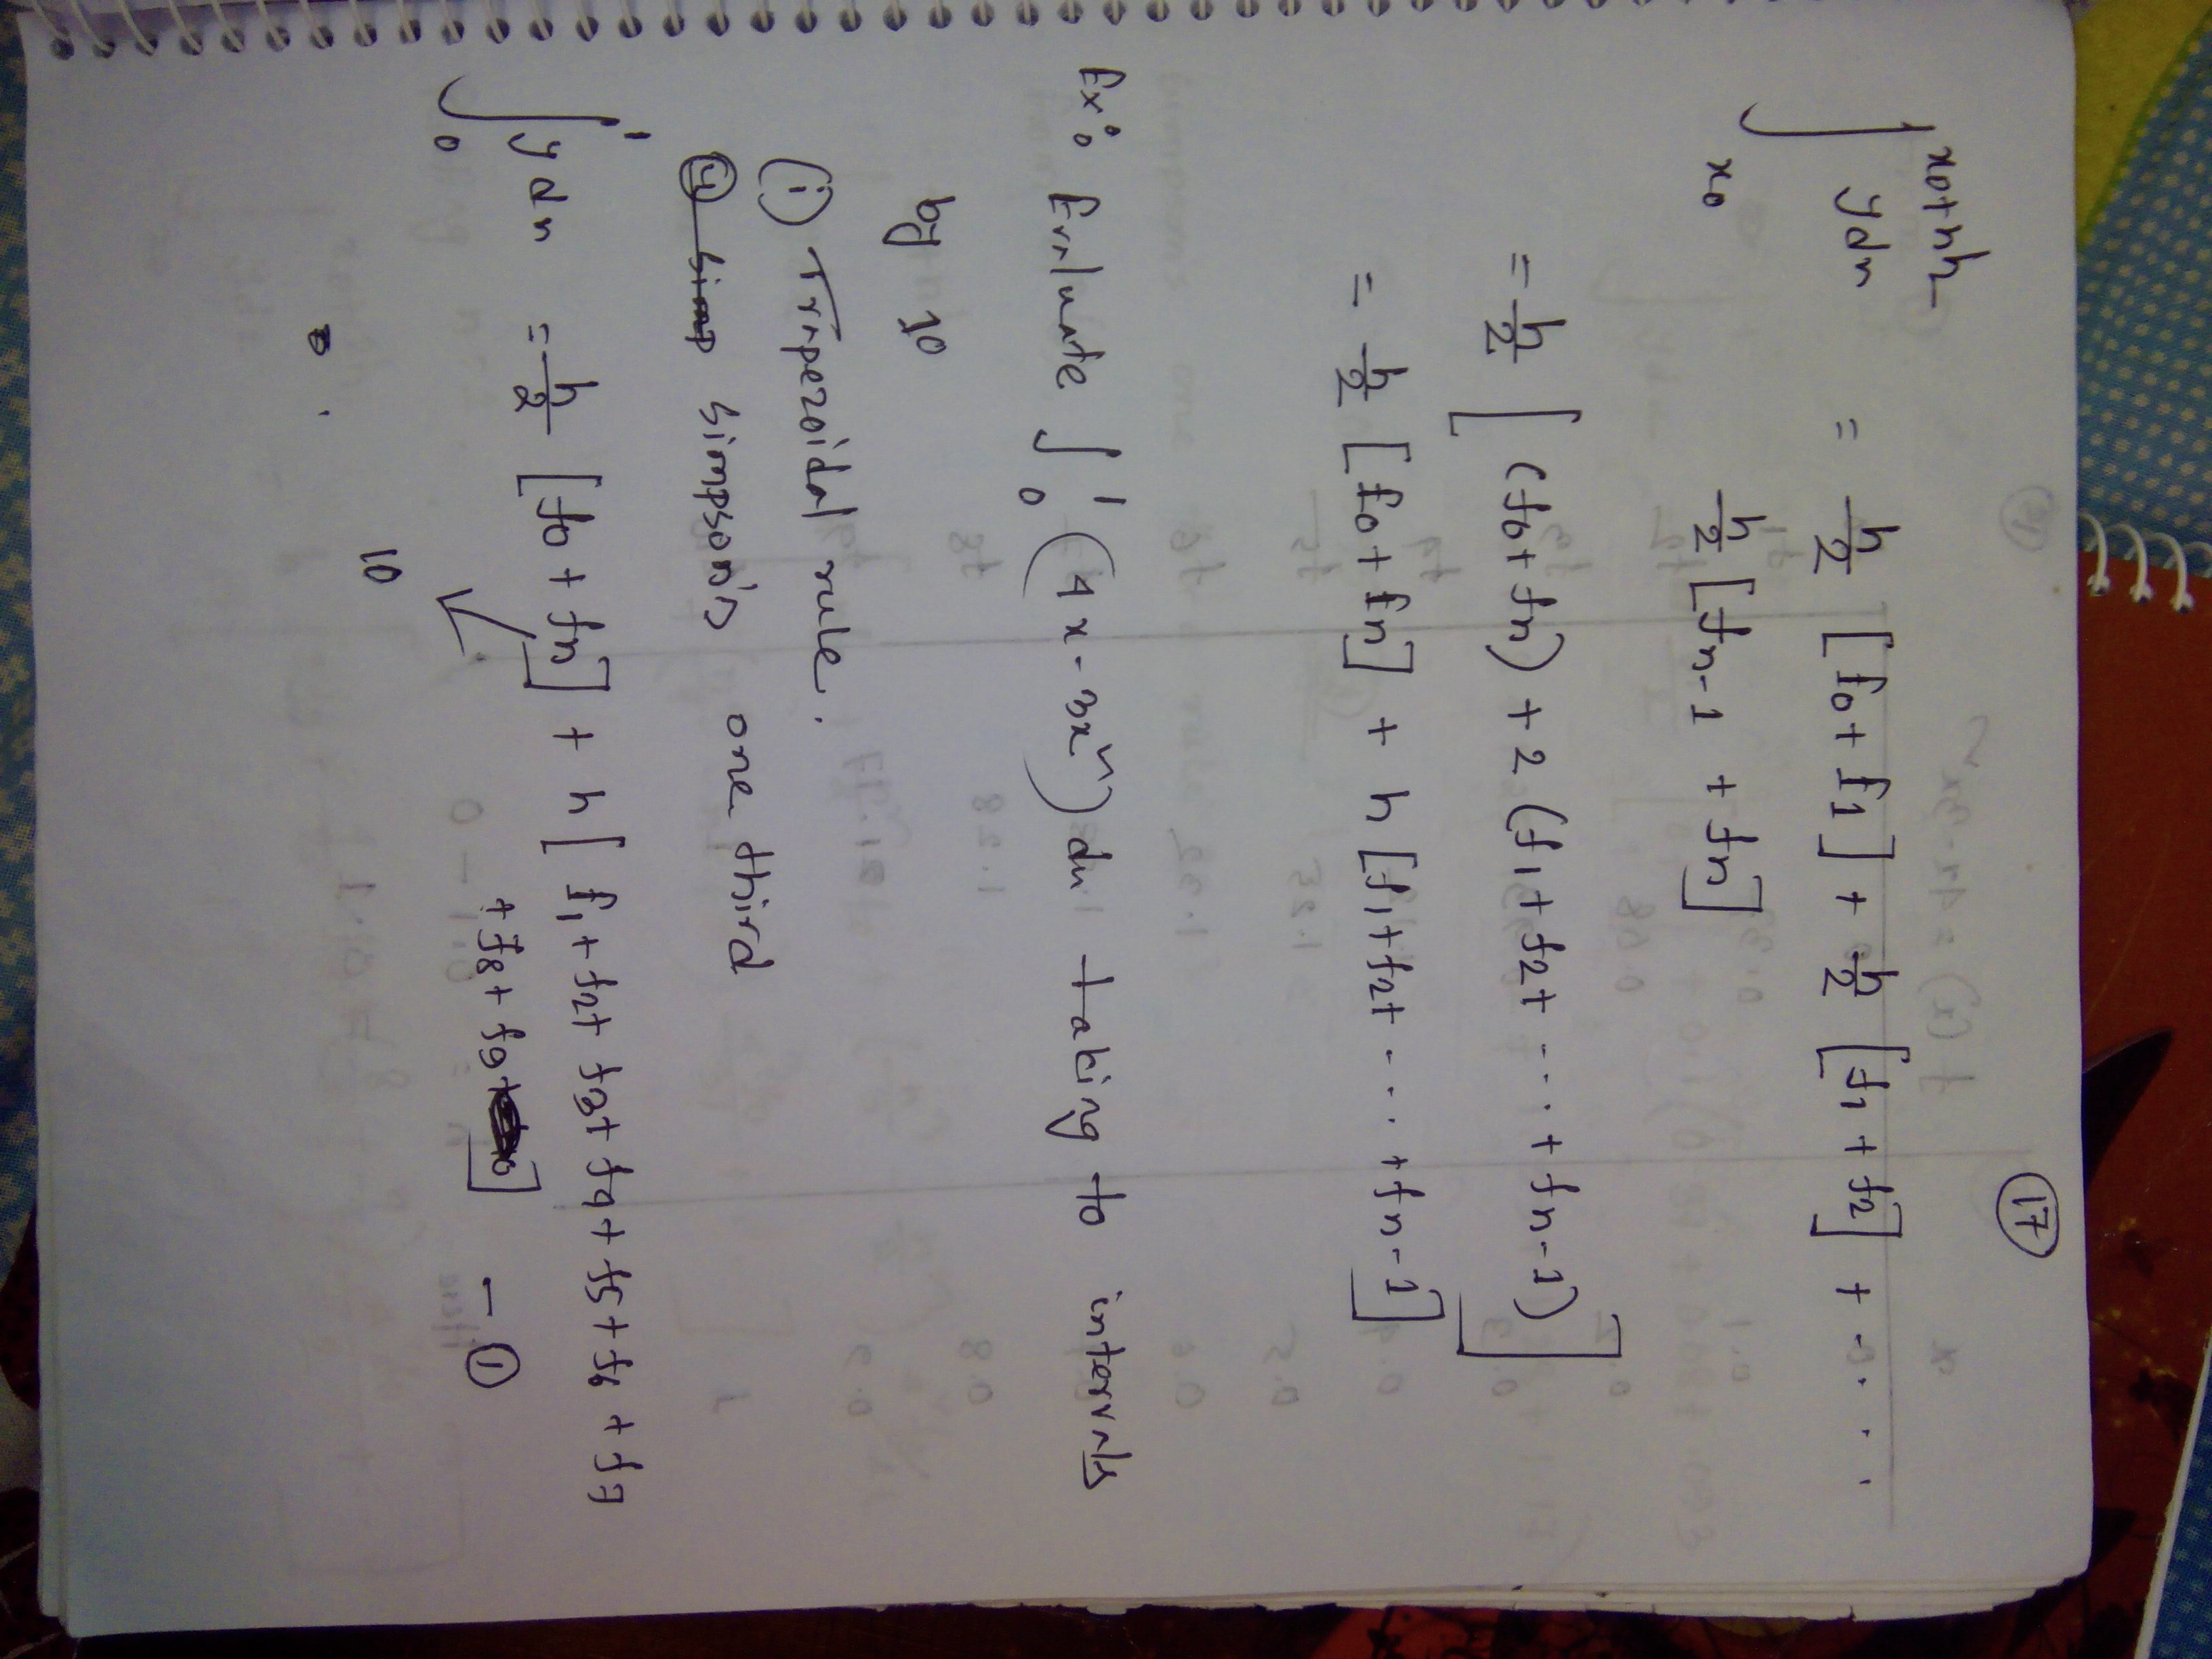 17
∫_{x0}^{x0+nh} ydx = h/2 [f0 + f1] + h/2 [f1 + f2] + ....
h/2 [fn-1 + fn]
= h/2 [(f0 + fn) + 2 (f1 + f2 + ... + fn-1)]
= h/2 [f0 + fn] + h [f1 + f2 + ... + fn-1]
Ex: Evaluate ∫_0^1 (4x - 3x²) dx taking to intervals
by 10
(i) Trapezoidal rule.
simpson's one third
∫_0^1 ydx = h/2 [f0 + fn] + h [f1 + f2 + f3 + f4 + f5 + f6 + f7
+ f8 + f9] - ①
10